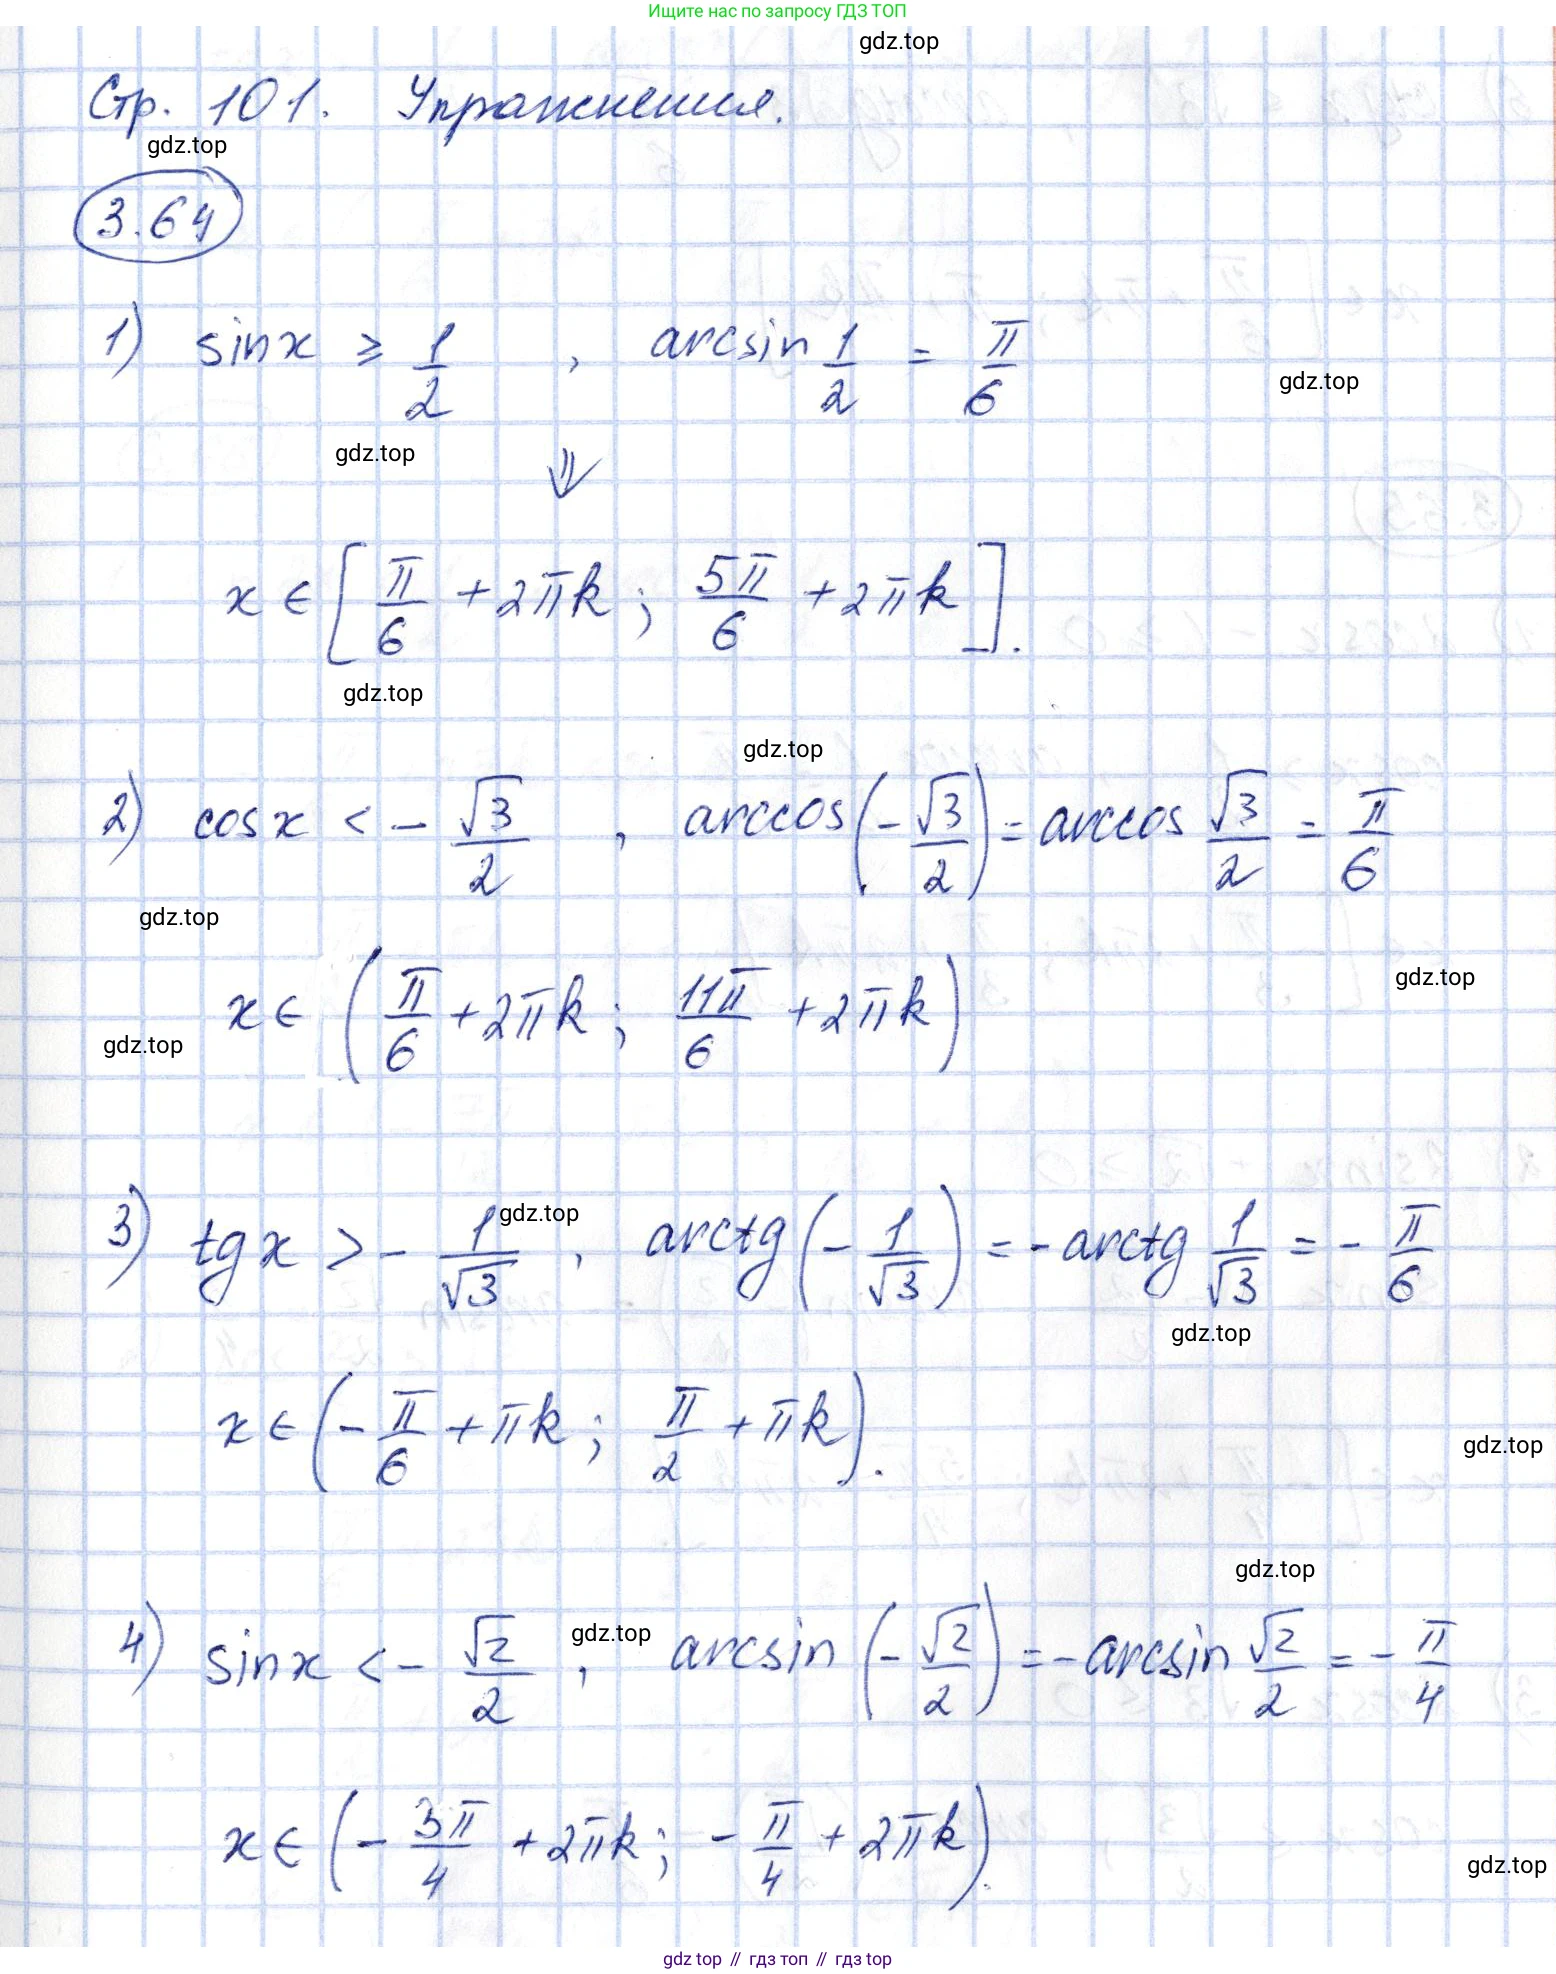 Ищите нас по запросу ГДЗ ТОП
gdz.top
Стр. 101. Упражнения.
gdz.top
3.64
1) sin x ≥ 1/2 , arcsin 1/2 = π/6
gdz.top
gdz.top
⇓
x ∈ [π/6 + 2πk ; 5π/6 + 2πk].
gdz.top
gdz.top
2) cos x < - √3/2 , arccos(-√3/2) = arccos √3/2 = π/6
gdz.top
gdz.top
x ∈ (π/6 + 2πk ; 11π/6 + 2πk)
gdz.top
3) tg x > - 1/√3 , arctg(-1/√3) = -arctg 1/√3 = - π/6
gdz.top
gdz.top
x ∈ (-π/6 + πk ; π/2 + πk).
gdz.top
gdz.top
4) sin x < - √2/2 , arcsin(-√2/2) = -arcsin √2/2 = - π/4
gdz.top
x ∈ (- 3π/4 + 2πk ; - π/4 + 2πk).
gdz.top
gdz top // гдз топ // гдз top